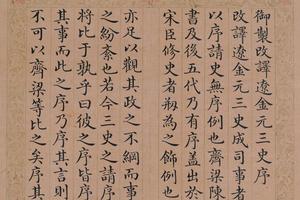 御製改譯遼金元三史序
改譯遼金元三史成司事者
以序請史無序例也齊梁陳
書及後五代乃有序蓋出於
宋臣修史者剏為之飾例也
亦足以觀其政之不綱而事
之紛紊也若今三史之請序
將比于孰乎曰彼之序皆序
其事而此之序乃序其言則
不可以齊梁等比之矣序其